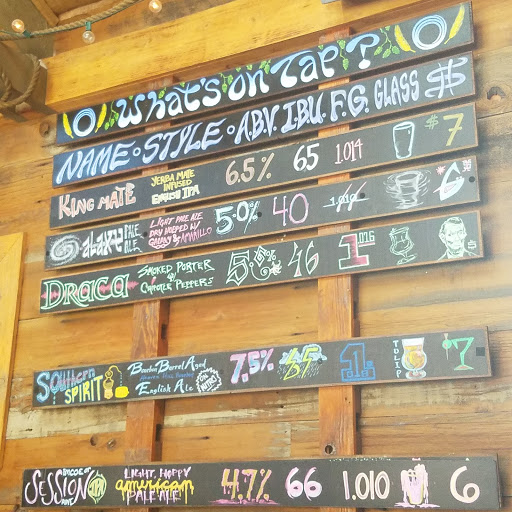 What's on Tap?
NAME • STYLE • A.B.V. I.B.U. F.G. GLASS $
KING MATE YERBA MATE INFUSED ENGLISH IPA 6.5% 65 1.014 $7
Galaxy PALE ALE LIGHT PALE ALE DRY HOPPED W/ GALAXY & AMARILLO 5.0% 40 1.010 6
DRACA SMOKED PORTER W/ CHIPOTLE PEPPERS 46 1.016
SOUTHERN SPIRIT Bourbon Barrel Aged English Ale ON NITRO 7.5% 45 TULIP 7
SESSION IPA LIGHT, HOPPY american PALE ALE! 4.7% 66 1.010 6